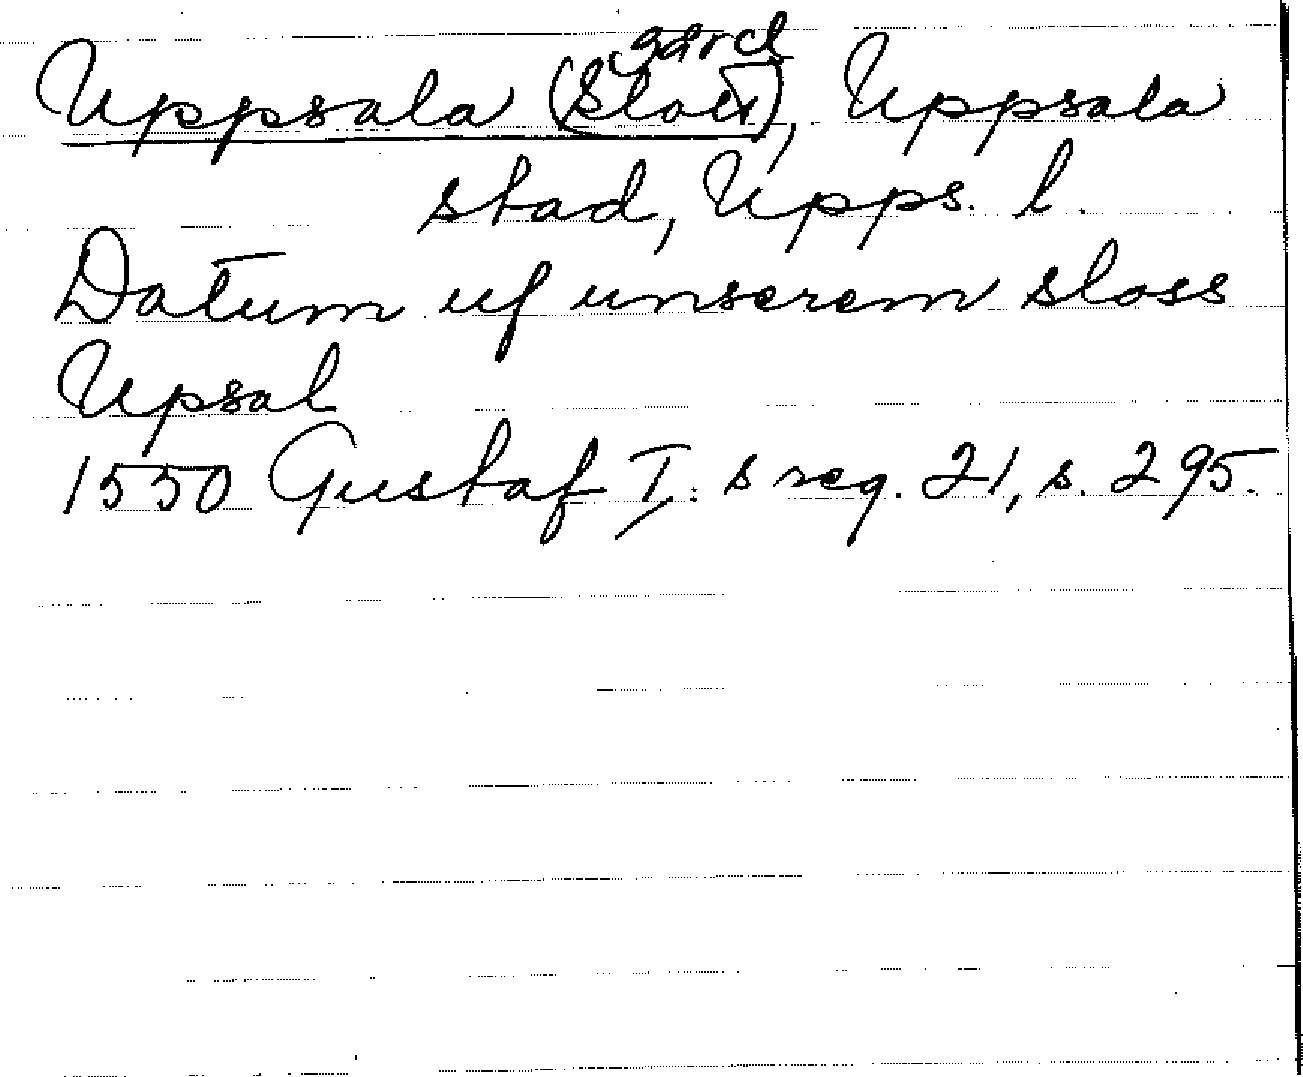 gård
Uppsala (slott), Uppsala
stad, Upps. l.
Datum uf unserem sloss
Upsal
1550 Gustaf I:s reg. 21, s. 295.